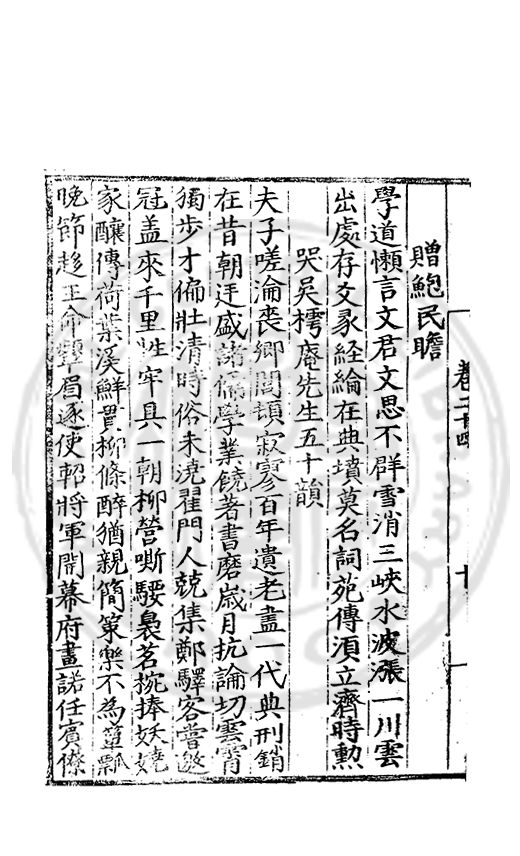 卷二十四
十一
贈鮑民瞻
學道懶言文君文思不群雪消三峽水波漲一川雲
出處存爻彖經綸在典墳莫名詞苑傳須立濟時勲
哭吳樗庵先生五十韻
夫子嗟淪喪鄉閭頓寂寥百年遺老盡一代典刑銷
在昔朝廷盛諸儒學業饒著書磨歲月抗論切雲霄
獨步才偏壯清時俗未澆翟門人兢集鄭驛客嘗邀
冠盖來千里牲牢具一朝柳營嘶騕褭茗椀捧妖嬈
家釀傳荷葉溪鮮貫柳條醉猶親簡策樂不為簞瓢
晚節趍王命顰眉逐使軺將軍開幕府畫諾任賓僚